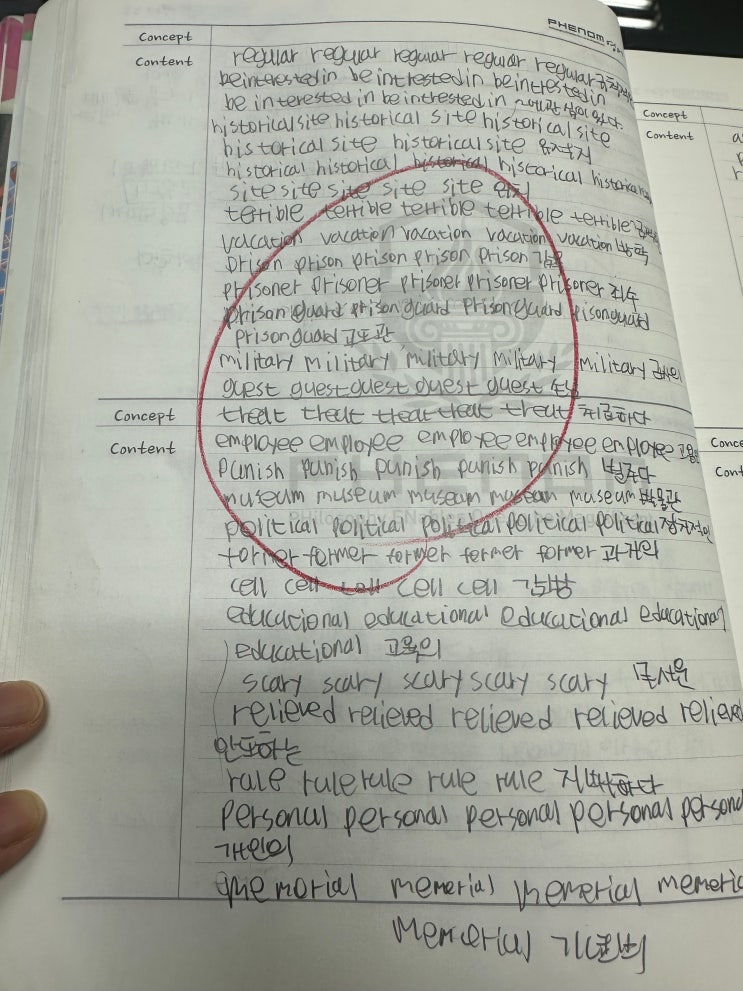 PHENOM
Concept
Content
regular regular regular regular regular 규칙적인
be interested in be interested in be intrested in
be interested in be intrested in ~에 관심이 있다.
historical site historical site historical site
historical site historical site 유적지
historical historical historical historical historical
site site site site site 위치
terrible terrible terrible terrible terrible
vacation vacation vacation vacation vacation 방학
prison prison prison prison prison 감옥
prisoner prisoner prisoner prisoner prisoner 죄수
prison guard prison guard prison guard pison guard
prison guard 교도관
military military military military military 군사의
guest guest guest guest guest 손님
Concept
treat treat treat treat treat 취급하다
Content
employee employee employee employee employee 고용인
punish punish punish punish punish 벌주다
museum museum museum museum museum 박물관
political political political political political 정치적인
former former former former former 과거의
cell cell cell cell cell 감방
educational educational educational educational
educational 교육의
scary scary scary scary scary 무서운
relieved relieved relieved relieved relieved
안도하는
rule rule rule rule rule 지배하다
personal personal personal personal persona
개인의
memorial memerial memerial memeria
memerial 기념의
Concept
Content
Conce
Cont